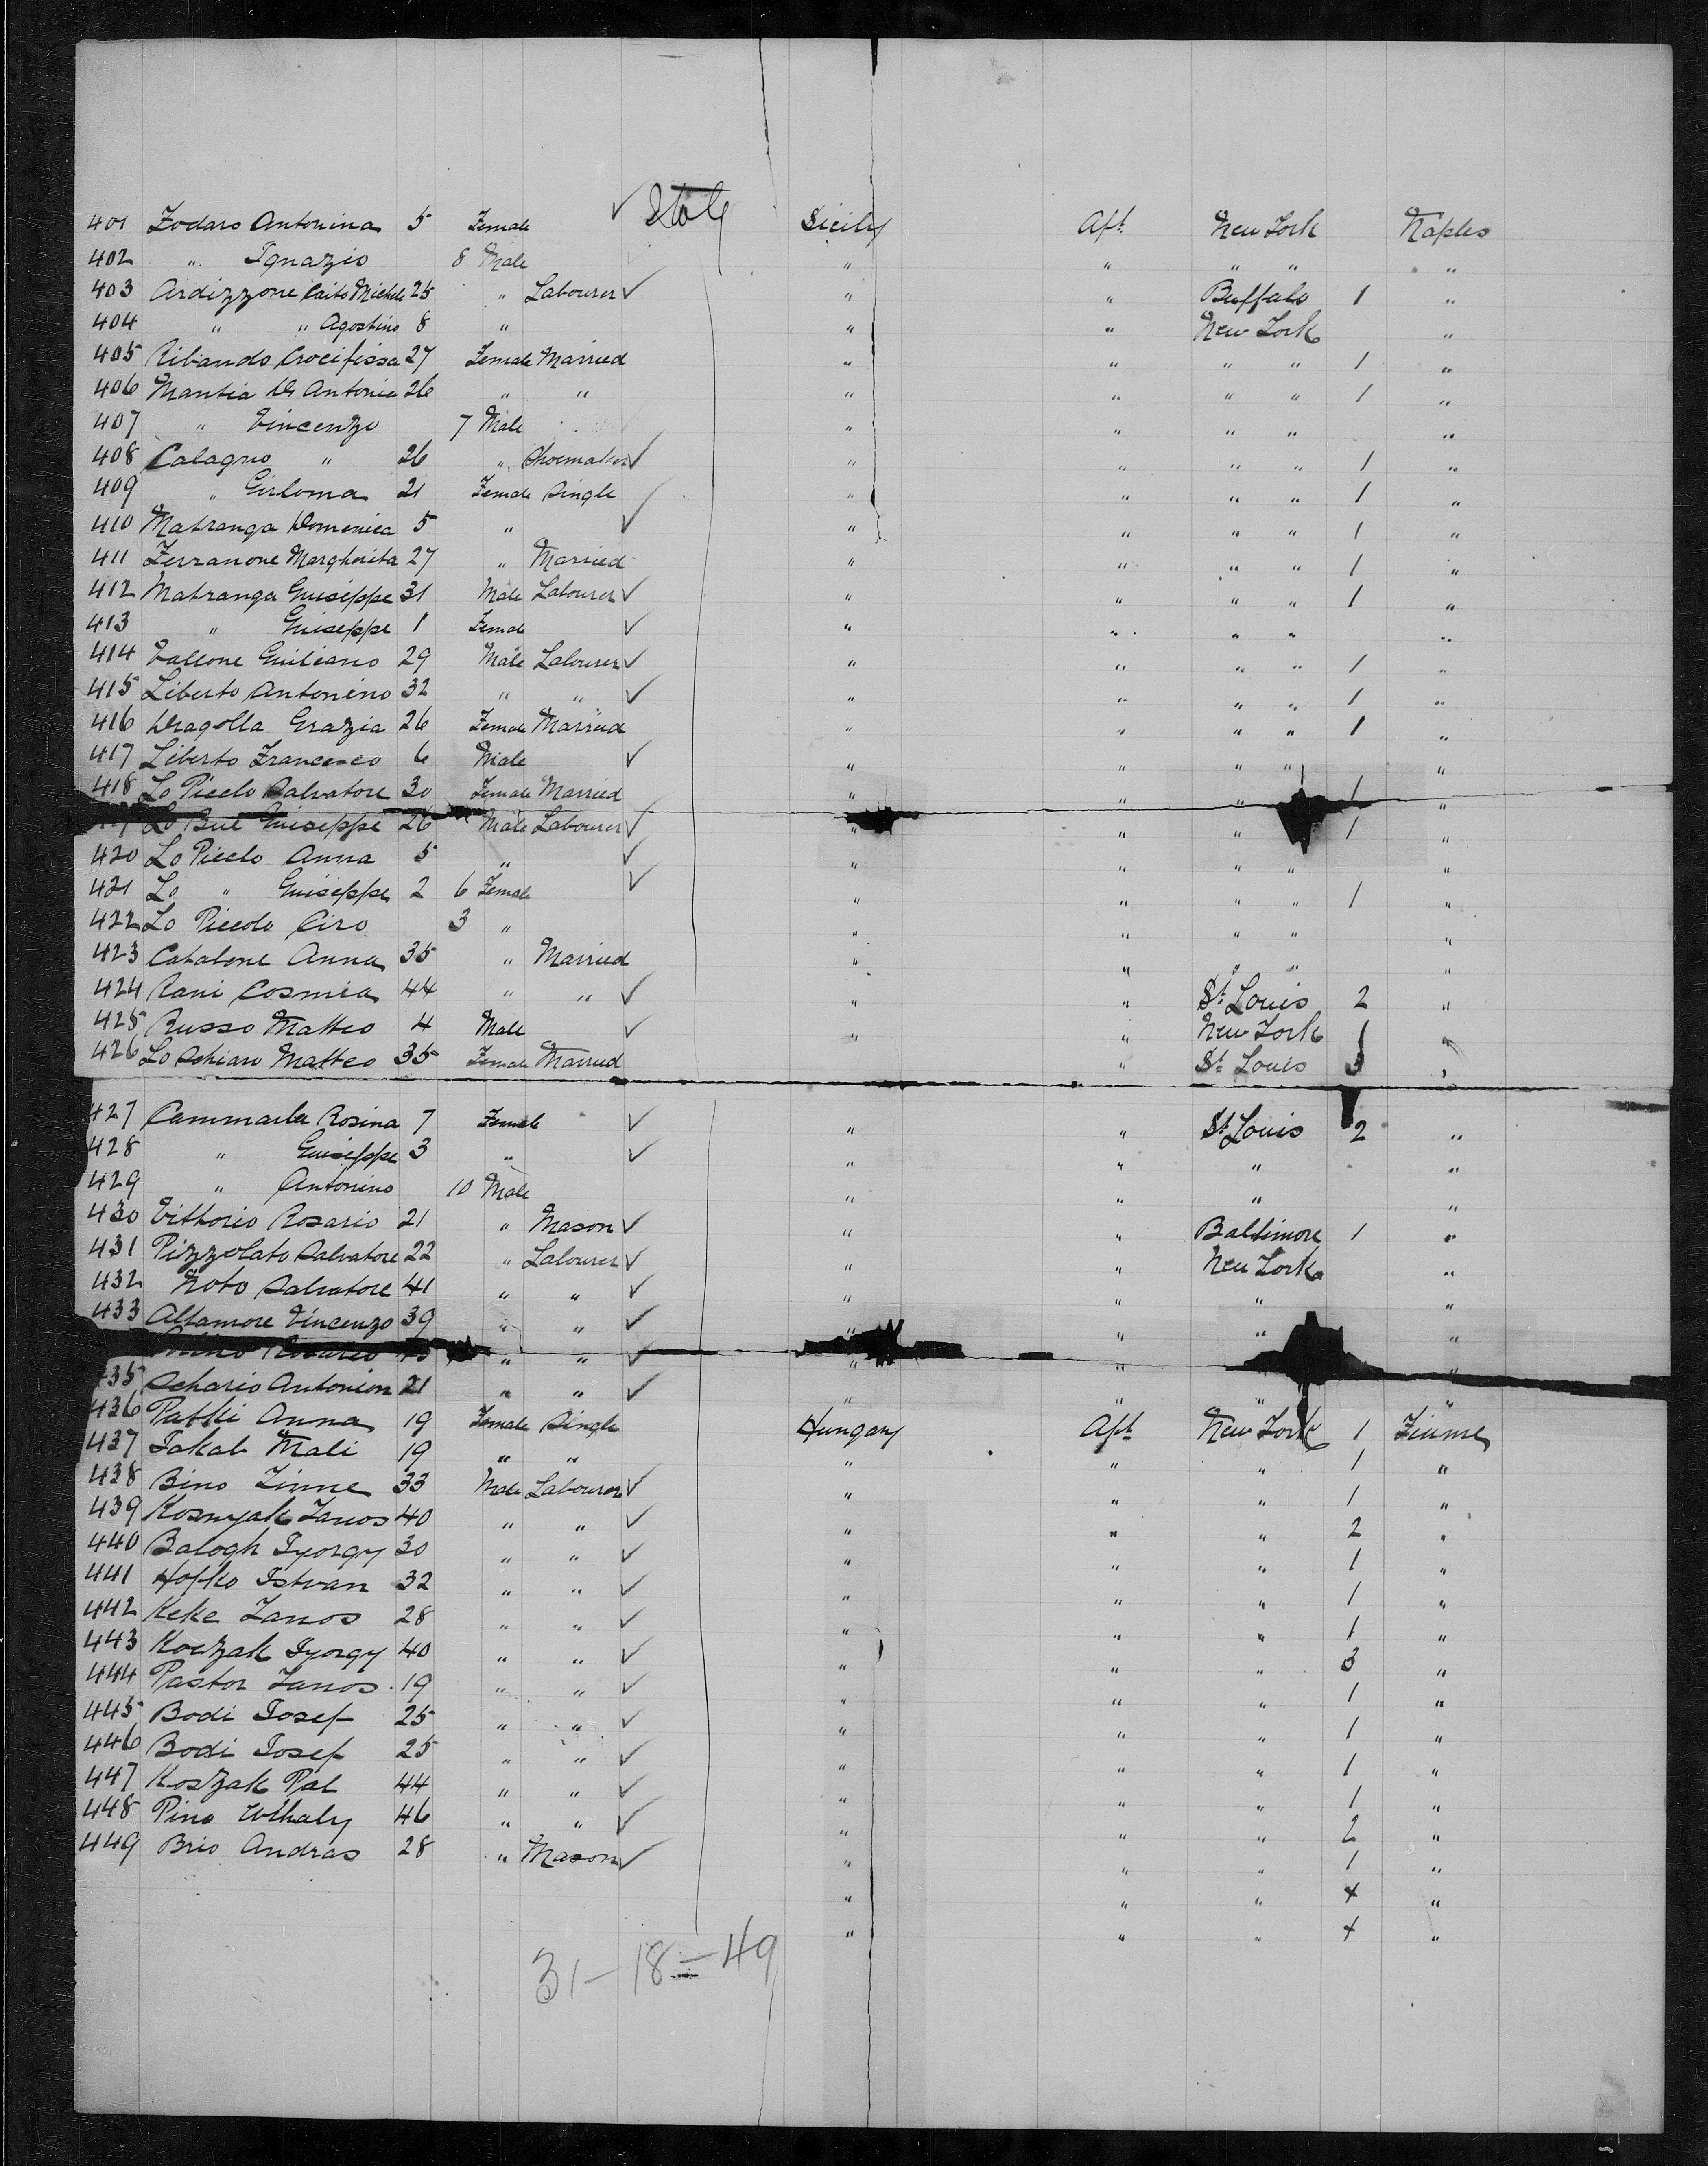 401 Zodaro Antonina 5 Female ✓ Italy Sicily Aft New York Naples
402 " Ignazio 8 Male " " " " "
403 Ardizzone Caito Michele 25 " Labourer ✓ " " Buffalo 1 "
404 " " Agostino 8 " " " New York "
405 Ribando Crocifissa 27 Female Married " " " " 1 "
406 Mantia Di Antonia 26 " " " " " " 1 "
407 " Vincenzo 7 Male " " " " "
408 Calagno " 26 " Shoemaker ✓ " " " " 1 "
409 " Girloma 21 Female Single ✓ " " " " 1 "
410 Matranga Domenica 5 " ✓ " " " " 1 "
411 Ferranone Margherita 27 " Married " " " " 1 "
412 Matranga Guiseppe 31 Male Labourer ✓ " " " " 1 "
413 " Guiseppe 1 Female ✓ " " " " "
414 Vallone Guiliano 29 Male Labourer ✓ " " " " 1 "
415 Liberto Antonino 32 " " ✓ " " " " 1 "
416 Dragolla Grazia 26 Female Married " " " " 1 "
417 Liberto Francesco 6 Male ✓ " " " " "
418 Lo Piccolo Salvatore 30 Female Married " " " 1 "
Lo Bue Guiseppe 26 Male Labourer ✓ " " " 1 "
420 Lo Piccolo Anna 5 " ✓ " " " " "
421 Lo " Guiseppe 2 6 Female ✓ " " " " 1 "
422 Lo Piccolo Ciro 3 " " " " " "
423 Catalone Anna 35 " Married " " " " "
424 Rani Cosmia 44 " " ✓ " " St. Louis 2 "
425 Russo Matteo 4 Male ✓ " " New York 1 "
426 Lo Schiavo Matteo 35 Female Married " St. Louis 3 "
427 Cammarla Rosina 7 Female ✓ " " St. Louis 2 "
428 " Guiseppe 3 " ✓ " " " "
429 " Antonino 10 Male " " " "
430 Vittorio Rosario 21 " Mason ✓ " " Baltimore 1 "
431 Pizzolato Salvatore 22 " Labourer ✓ " " New York "
432 Noto Salvatore 41 " " ✓ " " " "
433 Altamore Vincenzo 39 " " ✓ " " " "
" " ✓ " " "
435 Schario Antonion 21 " " ✓ " " " "
436 Patki Anna 19 Female Single Hungary Aft New York 1 Fiume
437 Jakab Mali 19 " " " " " 1 "
438 Bino Zinne 33 Male Labourer ✓ " " " 1 "
439 Kosnyak Janos 40 " " ✓ " " " 2 "
440 Balogh Gyorgy 30 " " ✓ " " " 1 "
441 Hofko Istvan 32 " " ✓ " " " 1 "
442 Keke Janos 28 " " ✓ " " " 1 "
443 Koczak Gyorgy 40 " " ✓ " " " 3 "
444 Pastor Janos 19 " " ✓ " " " 1 "
445 Bodi Josef 25 " " ✓ " " " 1 "
446 Bodi Josef 25 " " ✓ " " " 1 "
447 Koszak Pal 44 " " ✓ " " " 1 "
448 Pino Mihaly 46 " " ✓ " " " 2 "
449 Brio Andras 28 " Mason ✓ " " " 1 "
" " " x "
" " " x "
31 - 18 = 49